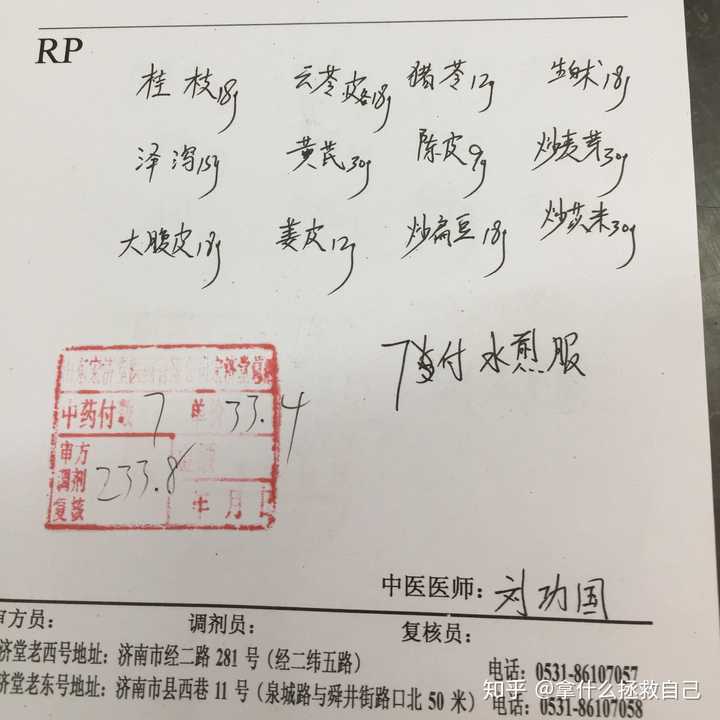 RP
桂枝18g 云苓皮各18g 猪苓12g 生白术18g
泽泻15g 黄芪30g 陈皮9g 炒麦芽30g
大腹皮18g 姜皮12g 炒扁豆18g 炒苡米30g
7付 水煎服
中药付数 7 单价 33.4
审方
调剂 233.8
复核 年 月 日
中医医师：刘功国
审方员： 调剂员： 复核员：
济堂老西号地址：济南市经二路 281 号（经二纬五路） 电话：0531-86107057
济堂老东号地址：济南市县西巷 11 号（泉城路与舜井街路口北 50 米） 电话：0531-86107058
知乎 @拿什么拯救自己